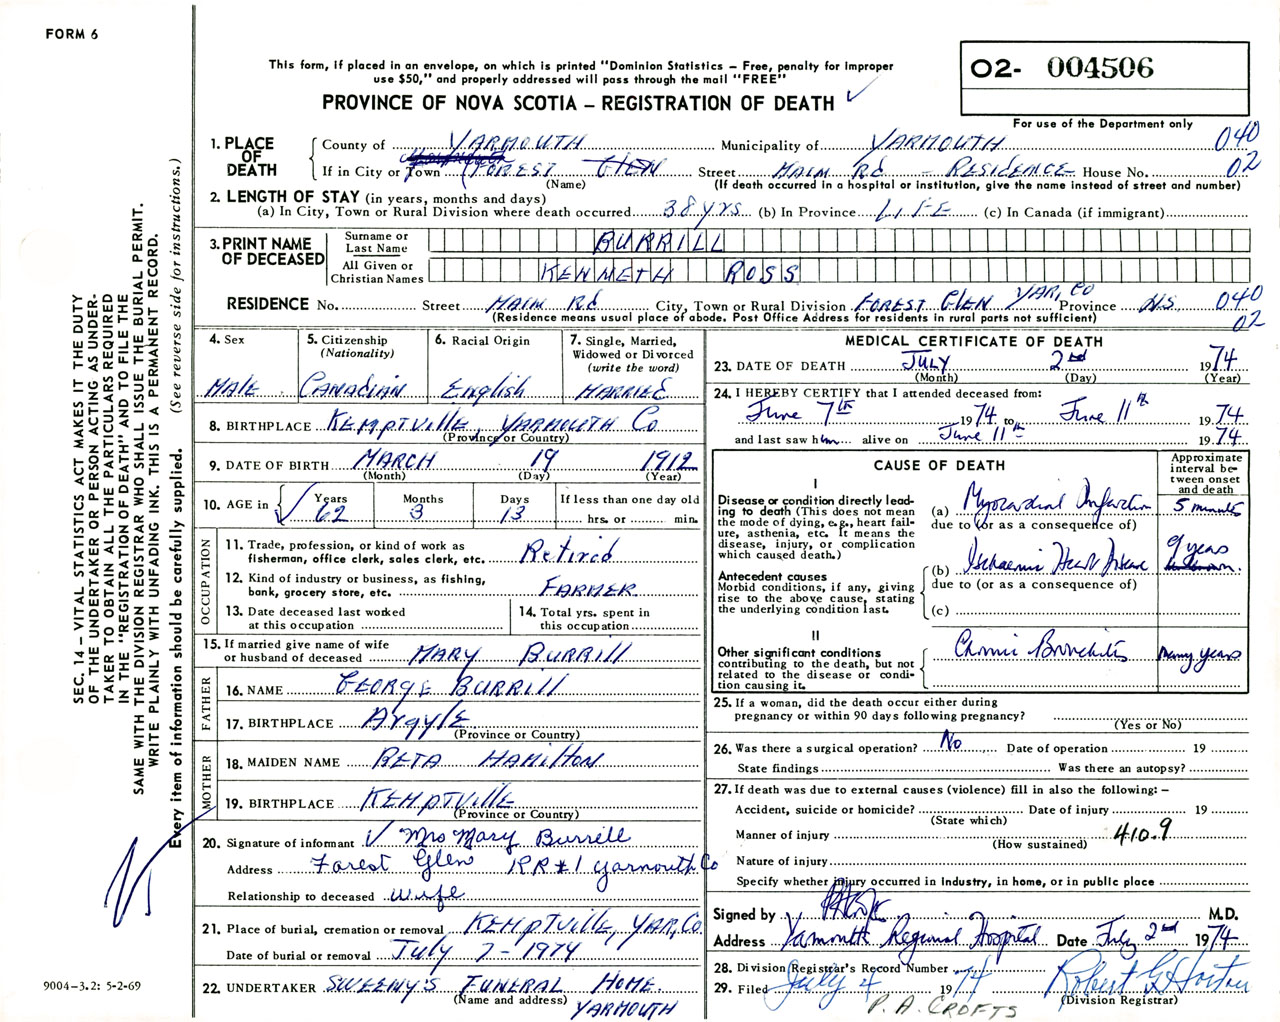 FORM 6
This form, if placed in an envelope, on which is printed "Dominion Statistics – Free, penalty for improper
use $50," and properly addressed will pass through the mail "FREE"
PROVINCE OF NOVA SCOTIA – REGISTRATION OF DEATH ✓
O2- 004506
For use of the Department only
SEC. 14 – VITAL STATISTICS ACT MAKES IT THE DUTY
OF THE UNDERTAKER OR PERSON ACTING AS UNDER-
TAKER TO OBTAIN ALL THE PARTICULARS REQUIRED
IN THE "REGISTRATION OF DEATH" AND TO FILE THE
SAME WITH THE DIVISION REGISTRAR WHO SHALL ISSUE THE BURIAL PERMIT.
WRITE PLAINLY WITH UNFADING INK. THIS IS A PERMANENT RECORD.
Every item of information should be carefully supplied. (See reverse side for instructions.)
1. PLACE OF DEATH County of YARMOUTH Municipality of YARMOUTH 040
If in City or Town FOREST GLEN Street MAIM RD - RESIDENCE House No. 02
(Name) (If death occurred in a hospital or institution, give the name instead of street and number)
2. LENGTH OF STAY (in years, months and days)
(a) In City, Town or Rural Division where death occurred 38 yrs (b) In Province LIFE (c) In Canada (if immigrant)
3. PRINT NAME OF DECEASED Surname or Last Name BURRILL
All Given or Christian Names KENNETH ROSS
RESIDENCE No. Street MAIM RD City, Town or Rural Division FOREST GLEN YAR, CO Province N.S. 040
(Residence means usual place of abode. Post Office Address for residents in rural parts not sufficient) 02
4. Sex MALE
5. Citizenship (Nationality) CANADIAN
6. Racial Origin English
7. Single, Married, Widowed or Divorced (write the word) MARRIED
8. BIRTHPLACE KEMPTVILLE, YARMOUTH Co
(Province or Country)
9. DATE OF BIRTH MARCH 19 1912
(Month) (Day) (Year)
10. AGE in ✓ Years 62 Months 3 Days 13 If less than one day old hrs. or min.
OCCUPATION
11. Trade, profession, or kind of work as
fisherman, office clerk, sales clerk, etc. Retired
12. Kind of industry or business, as fishing,
bank, grocery store, etc. FARMER
13. Date deceased last worked
at this occupation
14. Total yrs. spent in
this occupation
15. If married give name of wife
or husband of deceased MARY BURRILL
FATHER
16. NAME GEORGE BURRILL
17. BIRTHPLACE ArgylE
(Province or Country)
MOTHER
18. MAIDEN NAME RETA HAMILTON
19. BIRTHPLACE KEMPTVILLE
(Province or Country)
20. Signature of informant ✓ Mrs Mary Burrell
Address Forest Glen RR#1 Yarmouth Co
Relationship to deceased wife
21. Place of burial, cremation or removal KEMPTVILLE, YAR, Co.
Date of burial or removal July 7 - 1974
22. UNDERTAKER SWEENY'S FUNERAL HOME.
(Name and address) YARMOUTH
9004-3.2: 5-2-69
MEDICAL CERTIFICATE OF DEATH
23. DATE OF DEATH JULY 2nd 1974
(Month) (Day) (Year)
24. I HEREBY CERTIFY that I attended deceased from:
June 7th 1974 to June 11th 1974
and last saw him alive on June 11th 1974
CAUSE OF DEATH
Approximate interval between onset and death
I
Disease or condition directly lead-
ing to death (This does not mean
the mode of dying, e.g., heart fail-
ure, asthenia, etc. It means the
disease, injury, or complication
which caused death.)
(a) Myocardial Infarction 5 minutes
due to (or as a consequence of)
Antecedent causes
Morbid conditions, if any, giving
rise to the above cause, stating
the underlying condition last.
(b) Ischaemic Heart Disease 9 years
due to (or as a consequence of)
(c)
II
Other significant conditions
contributing to the death, but not
related to the disease or condi-
tion causing it.
Chronic Bronchitis many years
25. If a woman, did the death occur either during
pregnancy or within 90 days following pregnancy?
(Yes or No)
26. Was there a surgical operation? No Date of operation 19
State findings Was there an autopsy?
27. If death was due to external causes (violence) fill in also the following: –
Accident, suicide or homicide? Date of injury 19
(State which)
Manner of injury 410.9
(How sustained)
Nature of injury
Specify whether injury occurred in industry, in home, or in public place
Signed by M.D.
Address Yarmouth Regional Hospital Date July 2nd 1974
28. Division Registrar's Record Number
29. Filed July 4 1974 Robert G Horton
(Division Registrar)
P. A. CROFTS